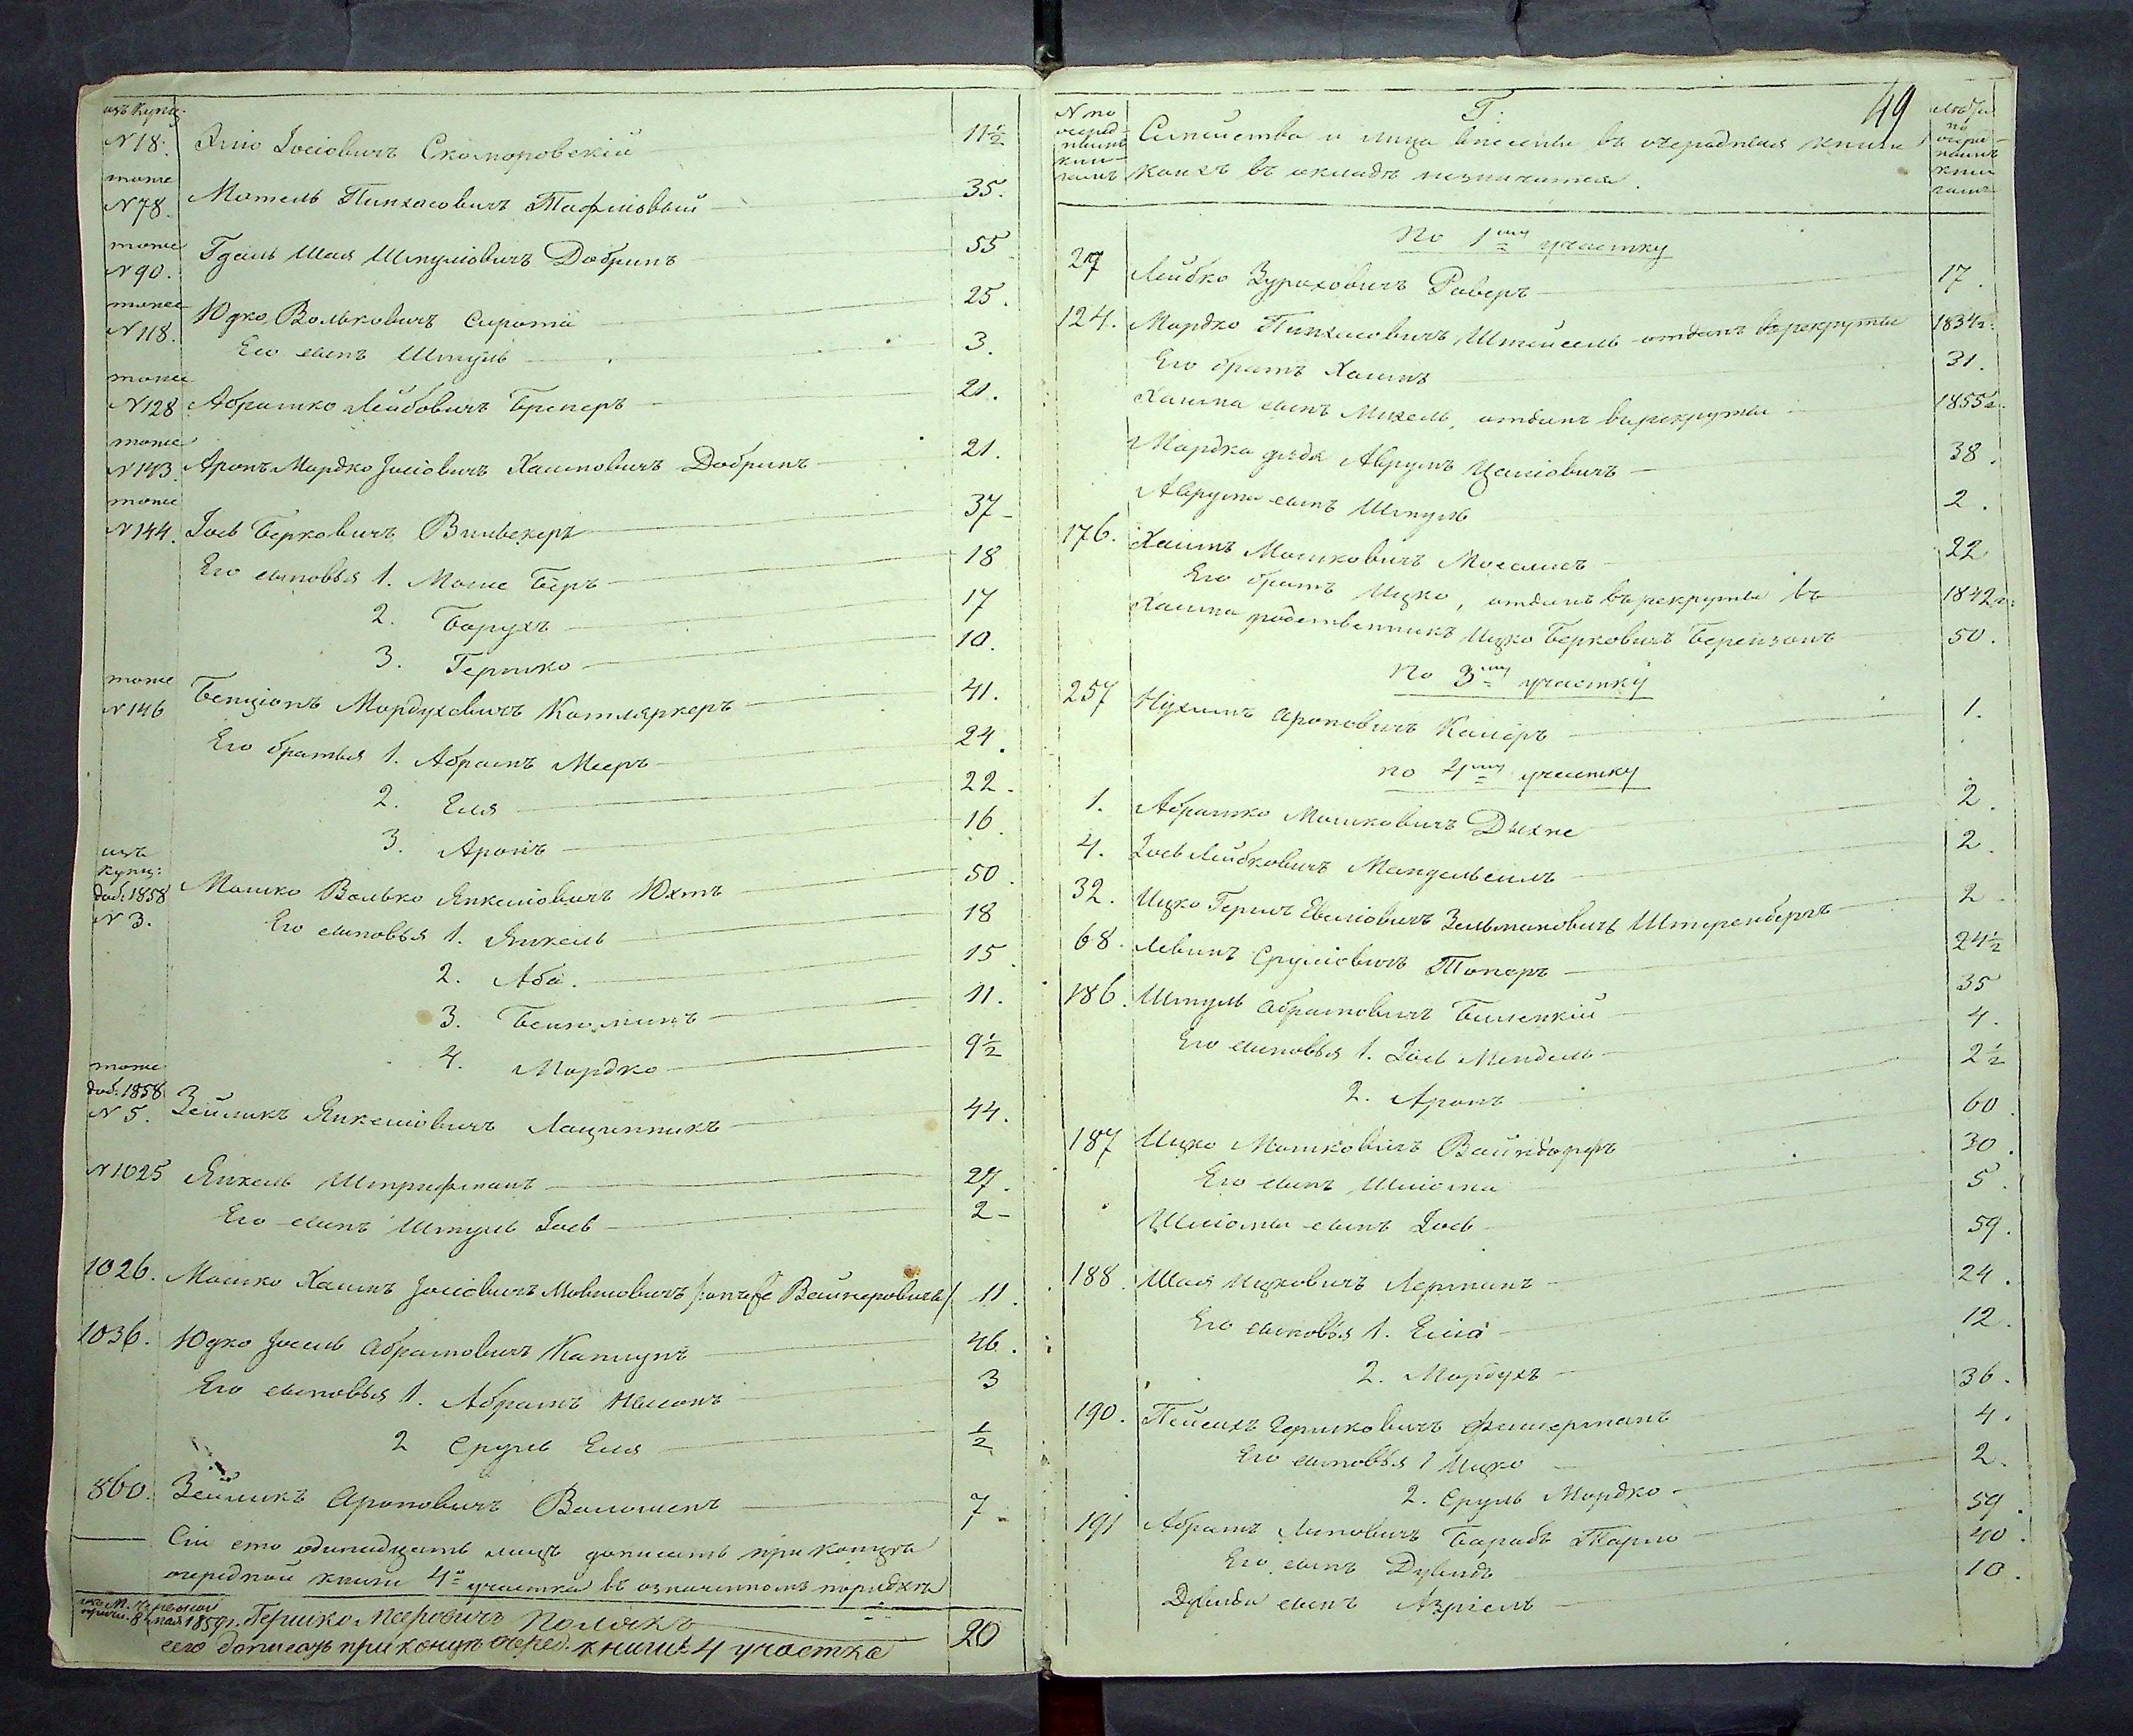 изъ купц:
N 18. Хаіо Іосіовичъ Скоморовскій 11½
тоже
N 78. Мотель Пинхасовичъ Тафліовый 35.
тоже
N 90. Гдаль Шая Шмуліовичъ Добринъ 55
тоже
N 118. Юдко Вольковичъ Сирота 25.
Его сынъ Шмуль 3.
тоже
N 128 Абрамко Лейбовичъ Бренеръ 21.
тоже
N 143. Аронъ Мордко Іосіовичъ Хаимовичъ Добринъ 21.
тоже
N 144. Іось Берковичъ Винокеръ 37
Его сыновья 1. Моше Беръ 18
2. Борухъ 17
3. Гершко 10.
тоже
N 146 Бенціонъ Мордуховичъ Котляркеръ 41.
Его братья 1. Абрамъ Мееръ 24.
2. Еля 22.
3. Аронъ 16.
изъ
купц:
доб: 1858
N 3. Мошко Волько Янкеліовичъ Юхтъ 50
Его сыновья 1. Янкель 18
2. Аба. 15
3. Беніоминъ 11.
4. Мордко 9½
тоже
доб: 1858
N 5. Зейликъ Янкеліовичъ Лащинникъ 44.
N 1025 Янкель Штрифманъ 27.
Его сынъ Шмуль Іось 2
1026. Мошко Хаимъ Іосіовичъ Мовшовичъ /: онъ же Вайнеровичъ / 11.
1036. Юдко Іосель Абрамовичъ Капшунъ 46.
Его сыновья 1. Абрамъ Насонъ 3
2 Сруль Еля ½
860. Зейликъ Ароновичъ Волошенъ 7
Сіи сто одинадцать лицъ дописать при концѣ
очередной книги 4го участка въ означенномъ порядкѣ
8 мая 1859 г. Гершко Меровичъ Полякъ 20
сего дописать при концѣ очеред. книги 4 участка
49
N по
очеред-
нымъ
кни-
гамъ
Г.
Семейства и лица внесены въ очередныя книги
коихъ въ окладѣ незначится.
лѣта
по
очеред-
нымъ
кни-
гамъ
По 1му участку
27 Лейбко Зураховичъ Раверъ 17.
124. Мордко Пинхасовичъ Штейсель отданъ въ рекруты 1834 г:
Его братъ Хаимъ 31.
Хаима сынъ Михель, отданъ въ рекруты 1855 г.
Мордка дядя Аврумъ Цаліовичъ 38.
Аврума сынъ Шмуль 2.
176. Хаимъ Мошковичъ Могалисъ 22
Его братъ Ицко, отданъ въ рекруты въ 1842 г:
Хаима родственникъ Ицко Берковичъ Берензонъ 50.
По 3му участку
257 Нухимъ Ароновичъ Каліоръ 1.
по 4му участку
1. Абрамко Мошковичъ Дыхне 2.
4. Іось Лейбковичъ Мандельсилъ 2.
32. Ицко Гершъ Евеліовичъ Зельмановичъ Штеренбергъ 2
68. Левинъ Сруліовичъ Топоръ 24½
186. Шмуль Абрамовичъ Биленкій 35
Его сыновья 1. Іось Мендель 4.
2. Аронъ 2½
187 Ицко Мошковичъ Вайнборухъ 60.
Его сынъ Шліома 30.
Шліомы сынъ Іось 5.
188. Шая Ицковичъ Лерманъ 59.
Его сыновья 1. Еліа 24.
2. Мордухъ 12.
190. Пейсахъ Гершковичъ Фишерманъ 36.
Его сыновья 1 Ицко 4.
2. Сруль Мордко 2.
191 Абрамъ Липовичъ Барабъ Тарло 59.
Его сынъ Дувидъ 40.
Дувида сынъ Азріель 10.